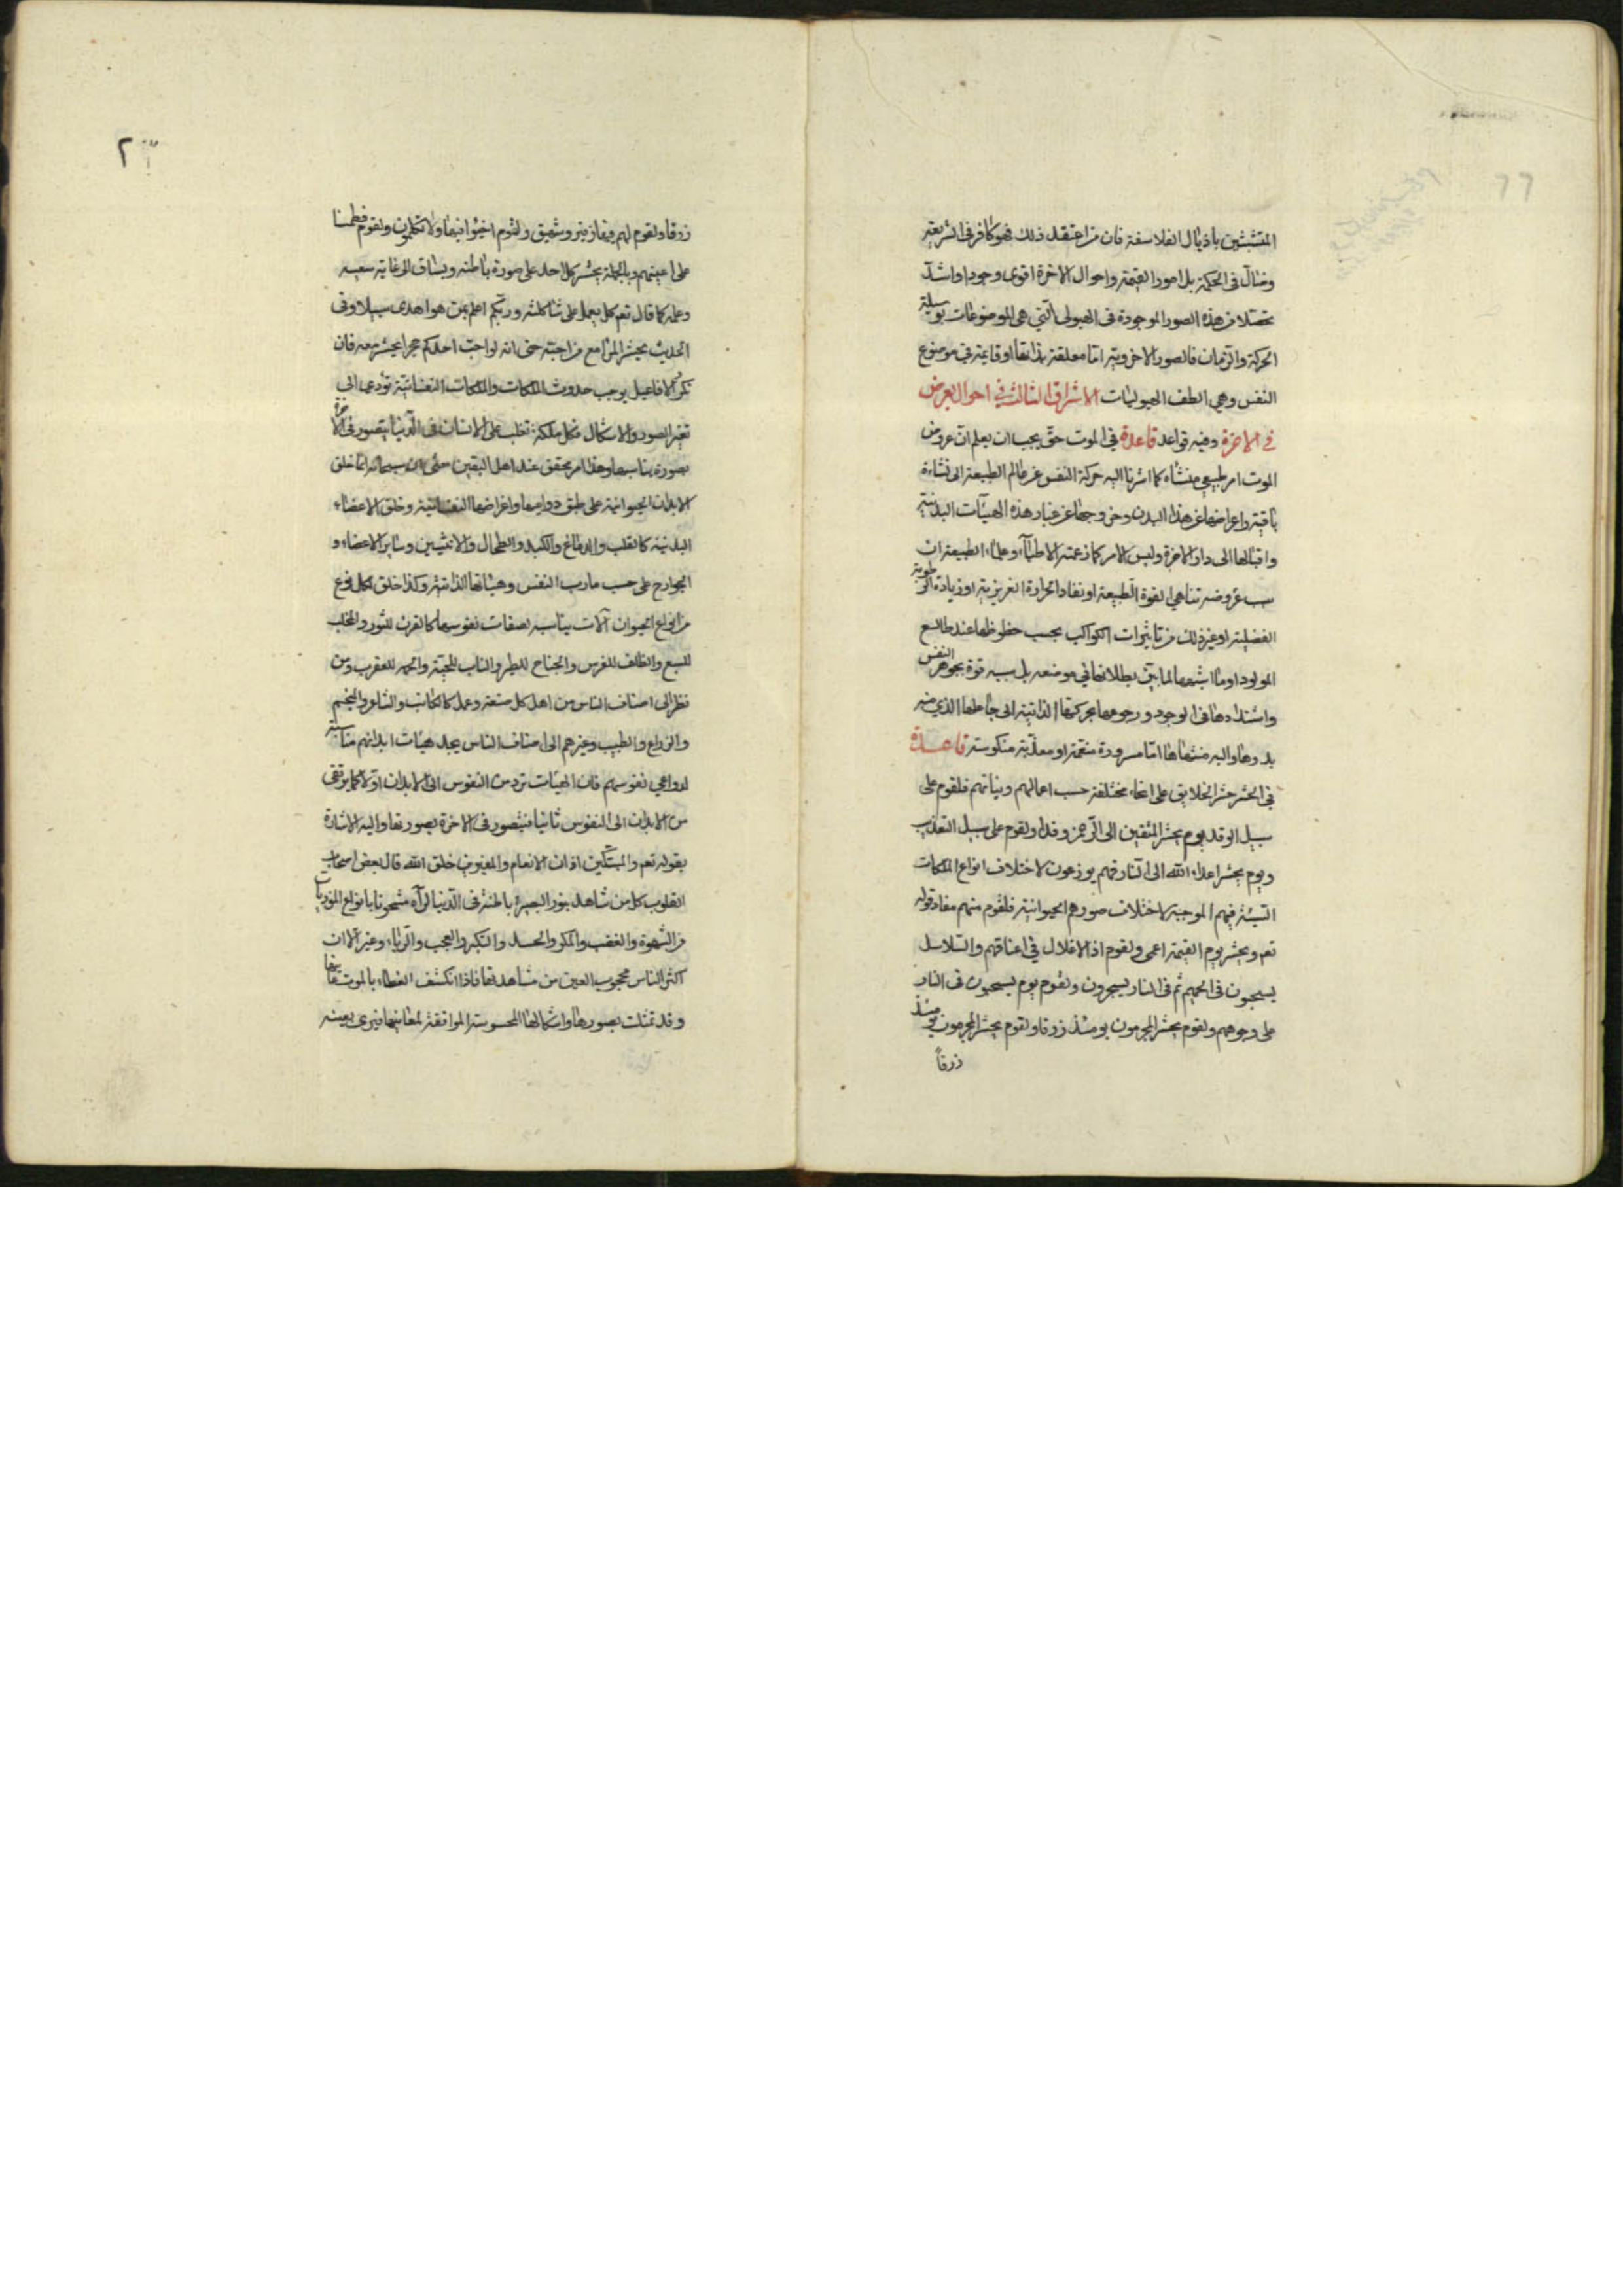 المتشبثين باذيال الفلاسفة فان من اعتقد ذلك فهو كافر في الشريعة
وضالّ في الحكمة بل امور القيمة واحوال الاخرة اقوى وجودا واشدّ
تحصّلا من هذه الصور الموجودة في الهيولى الّتي هي الموضوعات بوسيلة
الحركة والزّمان فالصور الاخروية امّا معلقة بذاتها او قايمة في موضوع
النفس وهي الطف الهيوليات الاشراق الثالث في احوال يعرض
في الاخرة وفيه قواعد قاعدة في الموت حقّ يجب ان يعلم انّ عروض
الموت امر طبيعي منشاه كما اشرنا اليه حركة النفس عن عالم الطبيعة الى نشاءة
باقية واعراضها عن هذا البدن وخروجها عن غبار هذه الهيئات البدنية
واقبالها الى دار الاخرة وليس الامر كما زعمته الاطبّاء وعلماء الطبيعة ان
سبب عروضه تناهي القوة الطّبيعة او نفاد الحرارة الغريزية او زيادة الرّطوبة
الفضلية او غير ذلك من تاثيرات الكواكب بحسب حظوظها عند طالع
المولود او ما اشبهها لما بيّن بطلانها في موضعه بل سببه قوة بجوهر النفس
واشتدادها في الوجود ورجوعها بحركتها الذاتية الى جاعلها الذي منه
بدءها واليه منتهاها امّا مسرورة منعّمة او معذّبة منكوسة قاعدة
في الحشر حشر الخلايق على انحاء مختلفة حسب اعمالهم ونياتهم فلقوم على
سبيل الوفد يوم يحشر المتّقين الى الرّحمن وفدا ولقوم على سبيل التعذيب
ويوم يحشر اعداء الله الى النّار فهم يوزعون لاختلاف انواع الملكات
السّيّئة فيهم الموجبة لاختلاف صورهم الحيوانية فلقوم منهم مفاد قوله
تعم ونحشره يوم القيمة اعمى ولقوم اذ الاغلال في اعناقهم والسّلاسل
يسحبون في الحميم ثم في النار يسجرون ولقوم يوم يسحبون في النار
على وجوههم ولقوم يحشر المجرمون يومئذ زرقا ولقوم يحشر المجرمون يومئذ
زرقاً
زرقا ولقوم لهم فيها زفير وشهيق ولقوم اخسؤا فيها ولا تكلمون ولقوم فطمسنا
على اعينهم وبالجملة يحشر كل احد على صورة باطنه ويساق الى غاية سعيه
وعمله كما قال تعم كل يعمل على شاكلته وربّكم اعلم بمن هو اهدى سبيلا وفي
الحديث يحشر المرء مع من احبّه حتى انه لو احبّ احدكم حجرا يحشر معه فان
تكرّر الافاعيل يوجب حدوث الملكات والملكات النفسانيّة تؤدي الى
تغير الصور والاشكال فكل ملكة تغلب على الانسان في الدّنيا يتصور في الاخرة
بصورة يناسبها وهذا امر محقق عند اهل اليقين حتى ان الله سبحانه انّما خلق
الابدان الحيوانية على طبق دواعيها واغراضها النفسانيّة وخلق الاعضاء
البدنية كالقلب والدماغ والكبد والطحال والانثيين وساير الاعضاء و
الجوارح على حسب مارب النفس وهيئاتها الذاتية وكذا خلق لكل نوع
من انواع الحيوان آلات يناسب لصفات نفوسها كالقرن للثور والمخلب
للسبع والظلف للفرس والجناح للطير والناب للحيّة والحمه للعقرب ومن
نظر الى اصناف الناس من اهل كل صنعة وعمل كالكاتب والشاعر والمنجم
والزراع والطبيب وغيرهم الى اصناف الناس يجد هيئات ابدانهم مناسبة
لدواعي نفوسهم فان الهيئات ترد من النفوس الى الابدان اوّلا كما يرتقى
من الابدان الى النفوس ثانيا فيتصور في الاخرة بصورتها واليه الاشارة
بقوله تعم فليبتّكنّ اذان الانعام وليغيّرن خلق الله قال بعض اصحاب
القلوب كل من شاهد بنور البصيرة باطنه في الدّنيا لرآه مشحونا بانواع الموذيات
من الشهوة والغضب والمكر والحسد والتكبّر والعجب والرّياء وغير الا ان
اكثر الناس محجوب العين من مشاهدتها فاذا انكشف الغطاء بالموت عاينها
وقد تمثلت بصورها واشكالها المحسوسة الموافقة لمعانيها فيرى بعينه